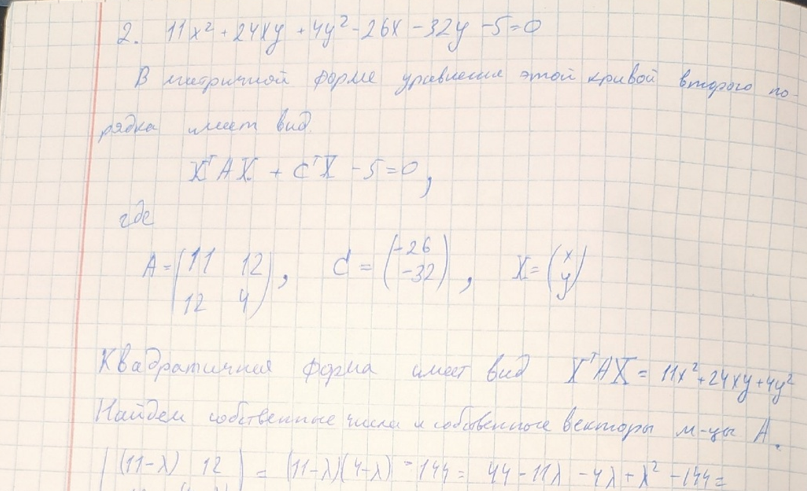 2. 11x² + 24xy + 4y² - 26x - 32y - 5 = 0
В матричной форме уравнение этой кривой второго по-
рядка имеет вид
XᵀAX + CᵀX - 5 = 0,
где
A = (11 12
12 4), C = (-26
-32), X = (x
y)
Квадратичная форма имеет вид XᵀAX = 11x² + 24xy + 4y²
Найдем собственные числа и собственные векторы м-цы A.
|(11-λ) 12| = (11-λ)(4-λ) - 144 = 44 - 11λ - 4λ + λ² - 144 =